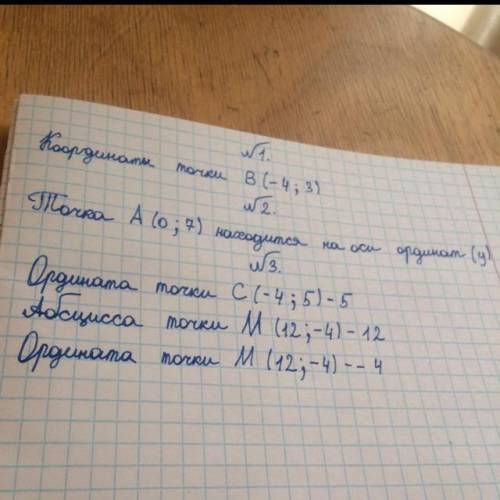 №1.
Координаты точки B(-4; 3)
№2.
Точка A(0; 7) находится на оси ординат (y)
№3.
Ордината точки C(-4; 5) - 5
Абсцисса точки M(12; -4) - 12
Ордината точки M(12; -4) - -4